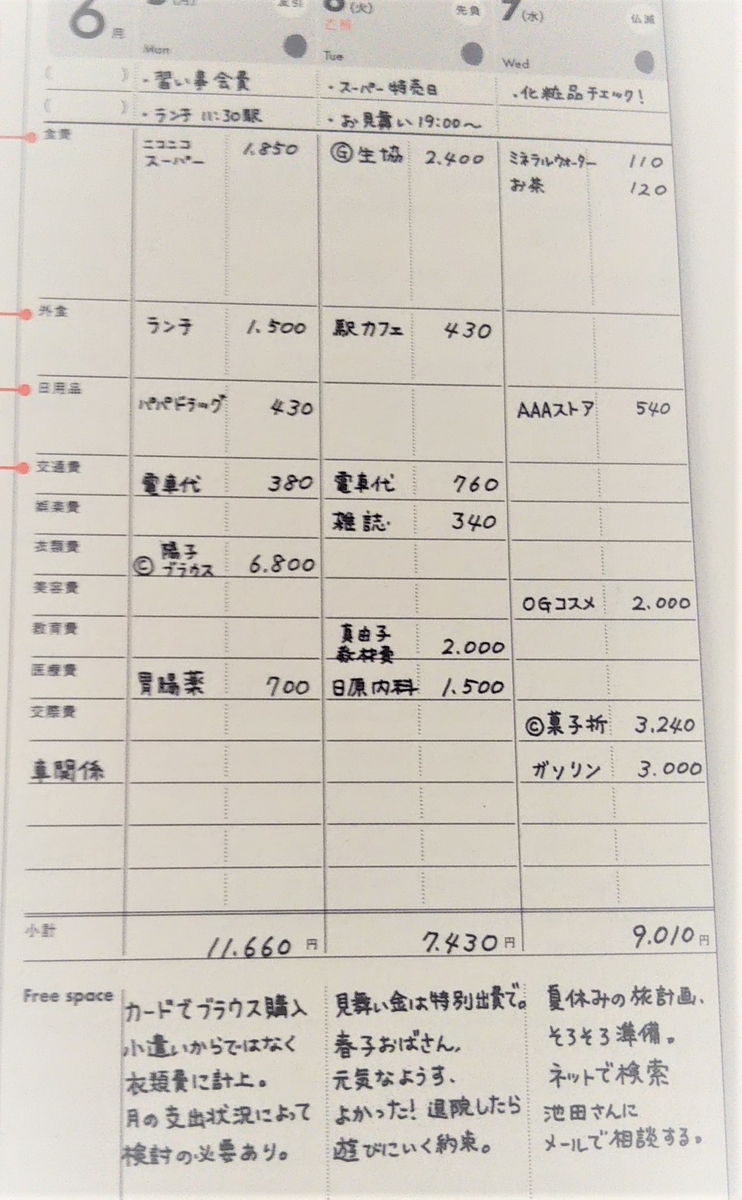 6月 (月) 友引 (火) 先負 7(水) 仏滅
Mon Tue Wed
( ) ・習い事会費 ・スーパー特売日 ・化粧品チェック!
( ) ・ランチ 11:30駅 ・お見舞い19:00〜
食費 ニコニコ 1.850 Ⓖ生協 2.400 ミネラルウォーター 110
スーパー お茶 120
外食 ランチ 1.500 駅カフェ 430
日用品 パパドラッグ 430 AAAストア 540
交通費 電車代 380 電車代 760
娯楽費 雑誌 340
衣類費 陽子
Ⓒ ブラウス 6.800
美容費 OGコスメ 2.000
教育費 真由子
教材費 2.000
医療費 胃腸薬 700 日原内科 1.500
交際費 Ⓒ菓子折 3.240
車関係 ガソリン 3.000
小計 11.660 円 7.430 円 9.010 円
Free space
カードでブラウス購入
小遣いからではなく
衣類費に計上。
月の支出状況によって
検討の必要あり。
見舞い金は特別出費で。
春子おばさん、
元気なようす、
よかった! 退院したら
遊びにいく約束。
夏休みの旅計画、
そろそろ準備。
ネットで検索
池田さんに
メールで相談する。